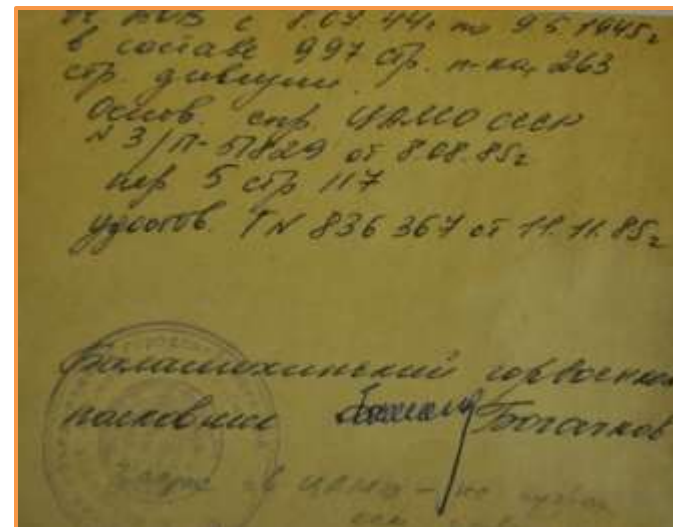 ВОВ с 8.07.44г по 9.5.1945г
в составе 997 стр. п-ка, 263
стр. дивизии.
Основ. спр. ЦАМО СССР
N 3/П-51829 от 8.08.85г
пер 5 стр 117
удостов. Г N 836 367 от 11.11.85г
Балашихинский горвоенком
полковник Богачков
в ЦАМО - не